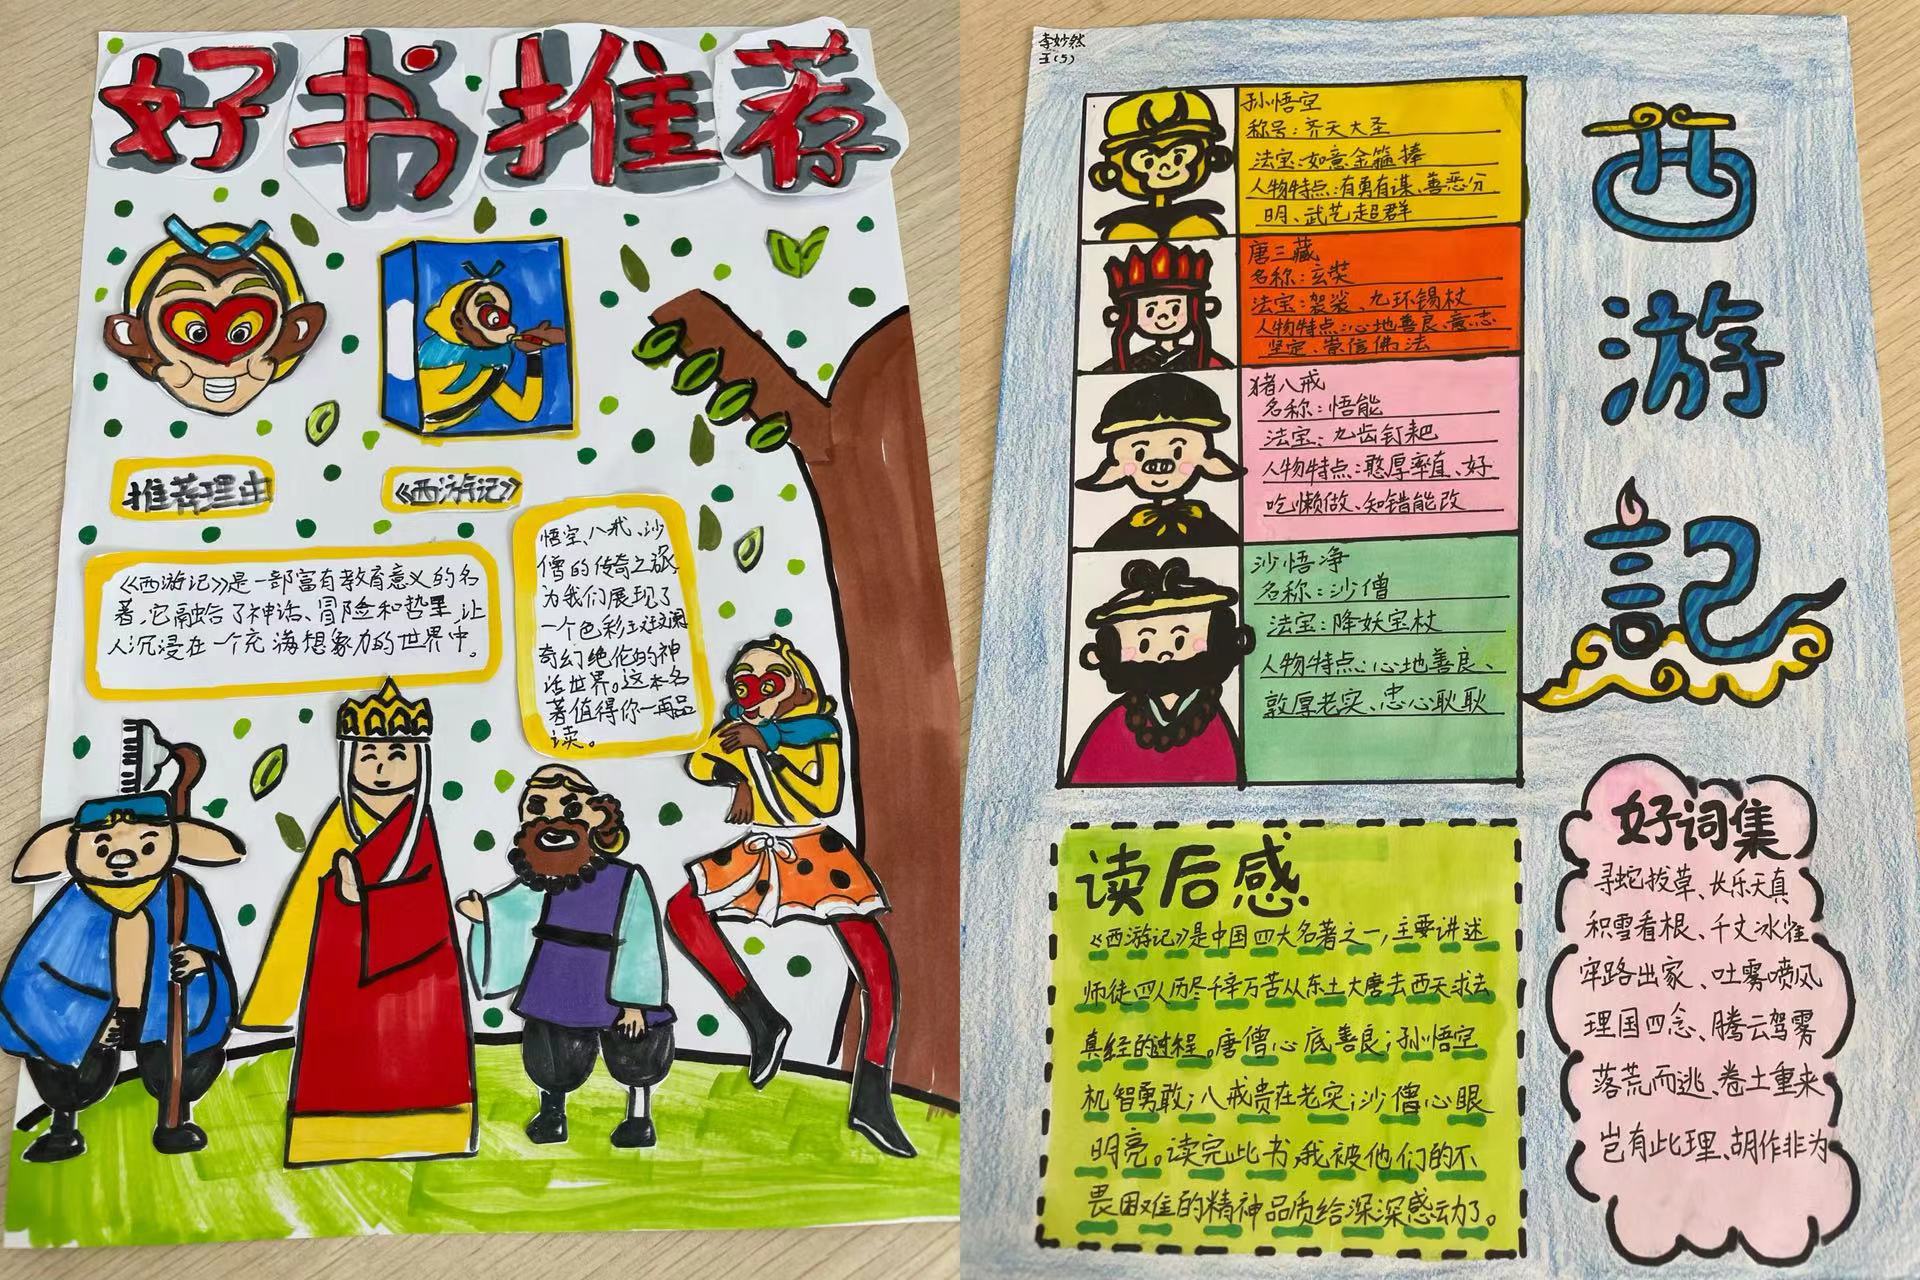 好书推荐
推荐理由
《西游记》
《西游记》是一部富有教育意义的名
著,它融合了神话、冒险和哲里,让
人沉浸在一个充满想象力的世界中。
悟空、八戒、沙
僧的传奇之旅,
为我们展现了
一个色彩斑斓
奇幻绝伦的神
话世界。这本名
著值得你一再品
读。
李妙然
五(5)
孙悟空
称号:齐天大圣
法宝:如意金箍棒
人物特点:有勇有谋、善恶分
明、武艺超群
唐三藏
名称:玄奘
法宝:袈裟、九环锡杖
人物特点:心地善良、意志
坚定、崇信佛法
猪八戒
名称:悟能
法宝:九齿钉耙
人物特点:憨厚率直、好
吃懒做、知错能改
沙悟净
名称:沙僧
法宝:降妖宝杖
人物特点:心地善良、
敦厚老实、忠心耿耿
西
游
記
读后感
《西游记》是中国四大名著之一,主要讲述
师徒四人历尽千辛万苦从东土大唐去西天求去
真经的过程。唐僧心底善良;孙悟空
机智勇敢;八戒贵在老实;沙僧心眼
明亮。读完此书,我被他们的不
畏困难的精神品质给深深感动了。
好词集
寻蛇拔草、长乐天真
积雪看根、千丈冰崖
牢路出家、吐雾喷风
理国四念、腾云驾雾
落荒而逃、卷土重来
岂有此理、胡作非为